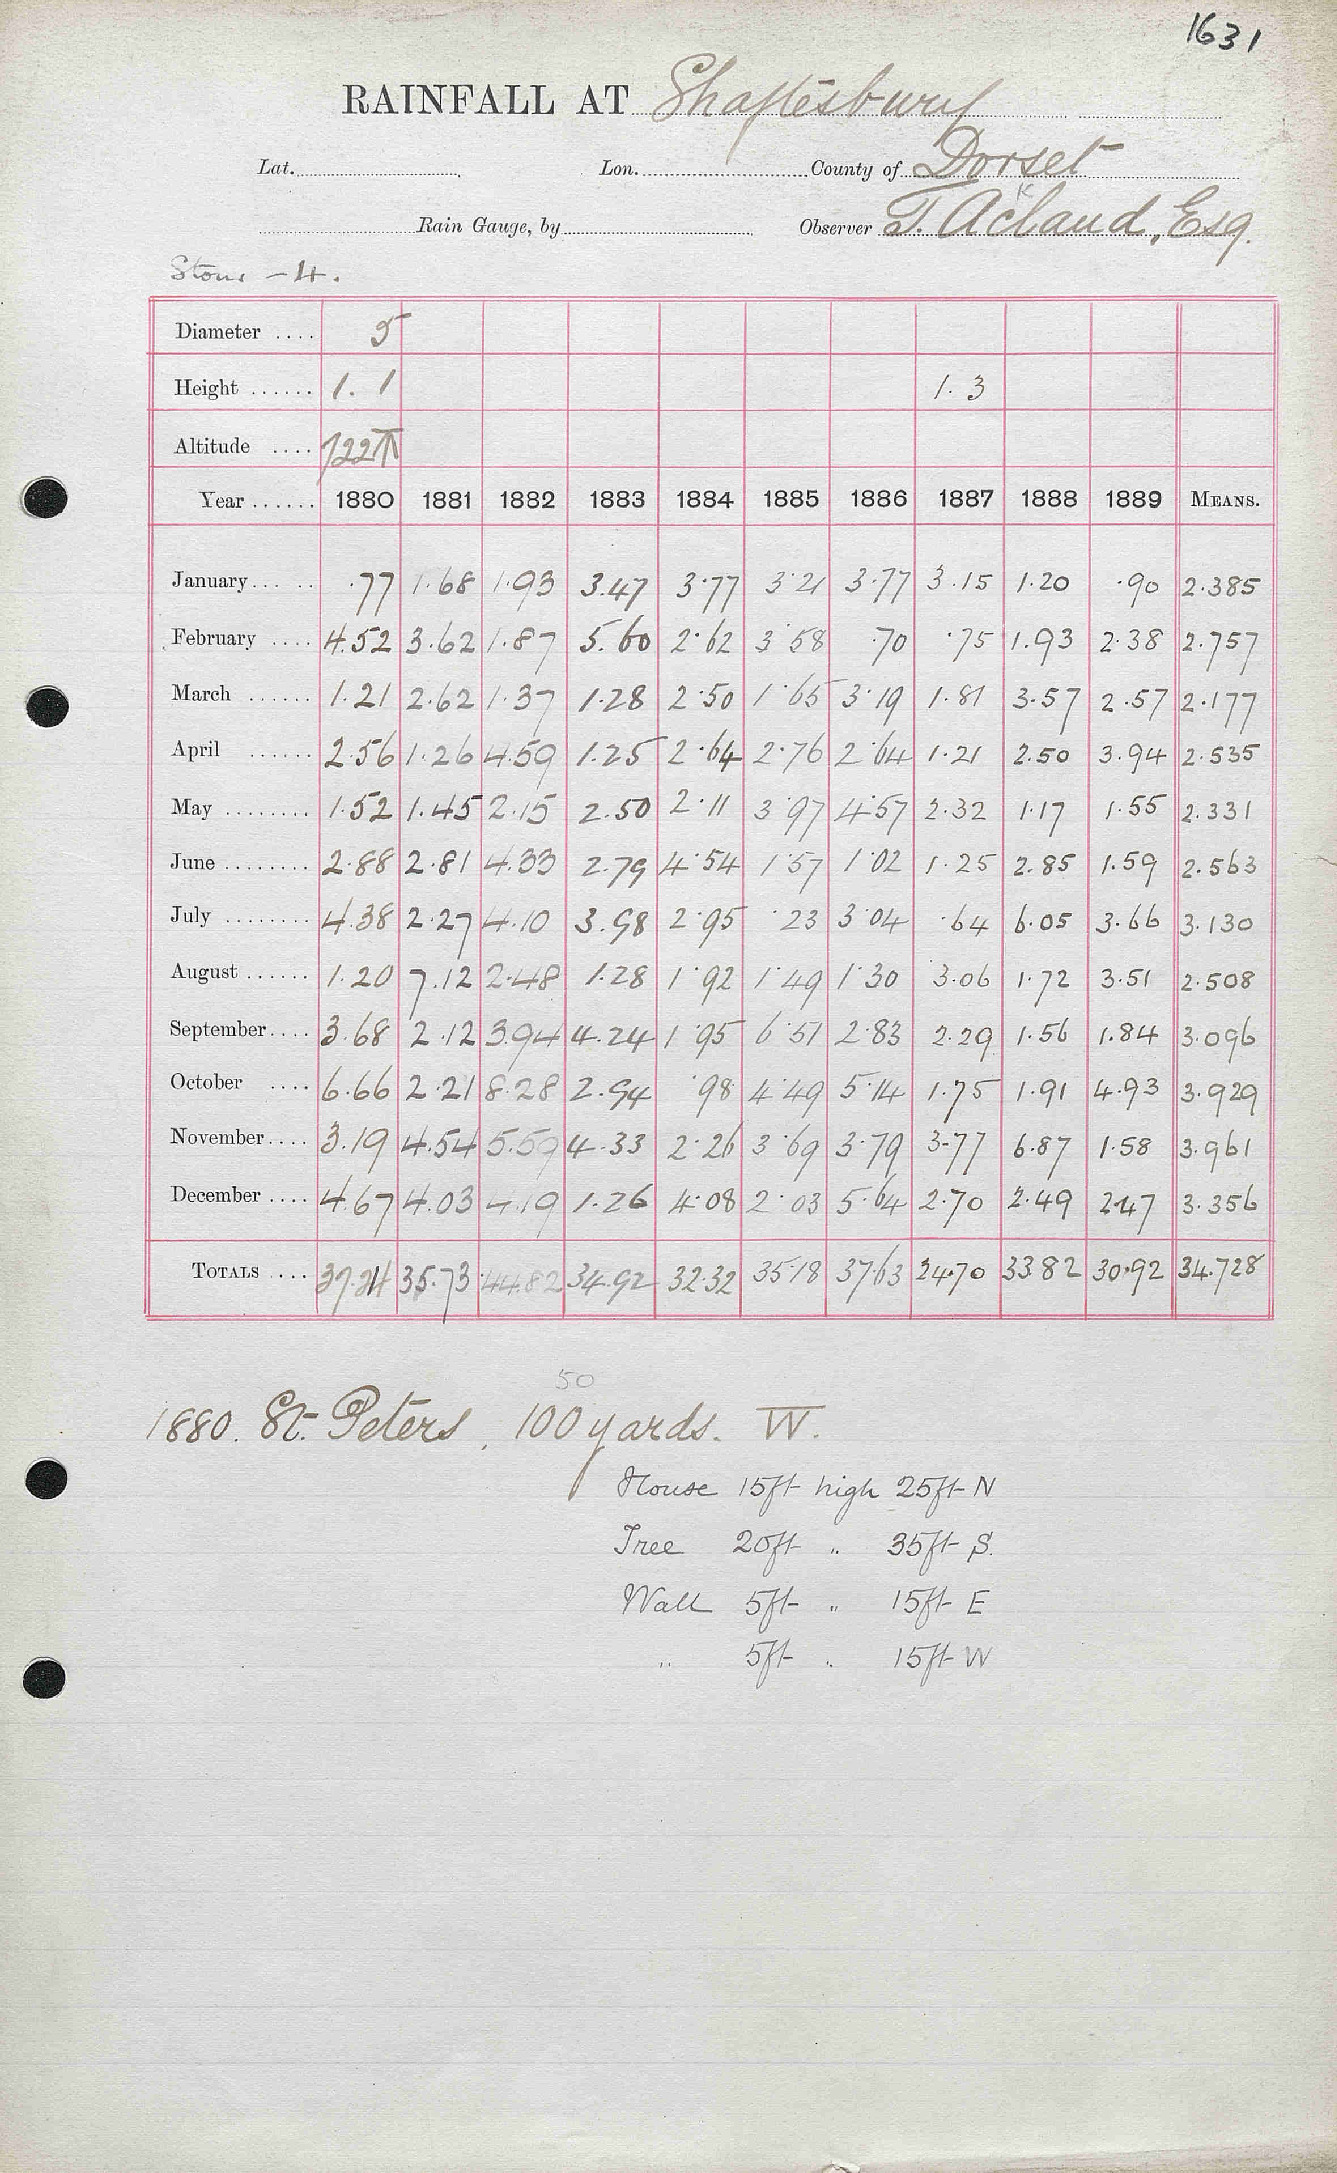 1631
RAINFALL AT Shaftesbury
Lat. Lon. County of Dorset
Rain Gauge, by Observer T. Acland, Esq.
Stour - 4.
Diameter .... 5
Height ...... 1. 1 1. 3
Altitude .... 722
Year ...... 1880 1881 1882 1883 1884 1885 1886 1887 1888 1889 MEANS.
January ... .. .77 1.68 1.93 3.47 3.77 3.21 3.77 3.15 1.20 .90 2.385
February .... 4.52 3.62 1.87 5.60 2.62 3.58 .70 .75 1.93 2.38 2.757
March ...... 1.21 2.62 1.37 1.28 2.50 1.65 3.19 1.81 3.57 2.57 2.177
April ...... 2.56 1.26 4.59 1.25 2.64 2.76 2.64 1.21 2.50 3.94 2.535
May ........ 1.52 1.45 2.15 2.50 2.11 3.97 4.57 2.32 1.17 1.55 2.331
June ........ 2.88 2.81 4.33 2.79 4.54 1.57 1.02 1.25 2.85 1.59 2.563
July ........ 4.38 2.27 4.10 3.98 2.95 .23 3.04 .64 6.05 3.66 3.130
August ...... 1.20 7.12 2.48 1.28 1.92 1.49 1.30 3.06 1.72 3.51 2.508
September.... 3.68 2.12 3.94 4.24 1.95 6.51 2.83 2.29 1.56 1.84 3.096
October .... 6.66 2.21 8.28 2.94 .98 4.49 5.14 1.75 1.91 4.93 3.929
November.... 3.19 4.54 5.59 4.33 2.26 3.69 3.79 3.77 6.87 1.58 3.961
December .... 4.67 4.03 4.19 1.26 4.08 2.03 5.64 2.70 2.49 2.47 3.356
TOTALS .... 37.24 35.73 44.82 34.92 32.32 35.18 37.63 24.70 33.82 30.92 34.728
50
1880. St. Peters, 100 yards. W.
House 15ft high 25ft N
Tree 20ft " 35ft S.
Wall 5ft " 15ft E
" 5ft " 15ft W